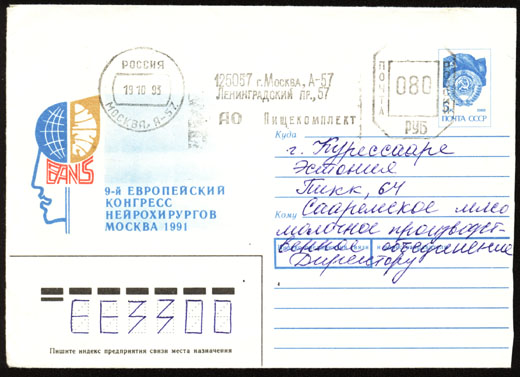 РОССИЯ
19 10 93
МОСКВА, А-57
125057 г.Москва, А-57
Ленинградский пр., 57
АО Пищекомплект
ПОЧТА
080
РУБ
ПОЧТА СССР
EANS
9-й ЕВРОПЕЙСКИЙ
КОНГРЕСС
НЕЙРОХИРУРГОВ
МОСКВА 1991
Куда
г. Курессааре
Эстония
Пикк, 64
Кому Сааремское мясо
молочное производст-
венное объединение
Директору
ЕЕ3300
Пишите индекс предприятия связи места назначения